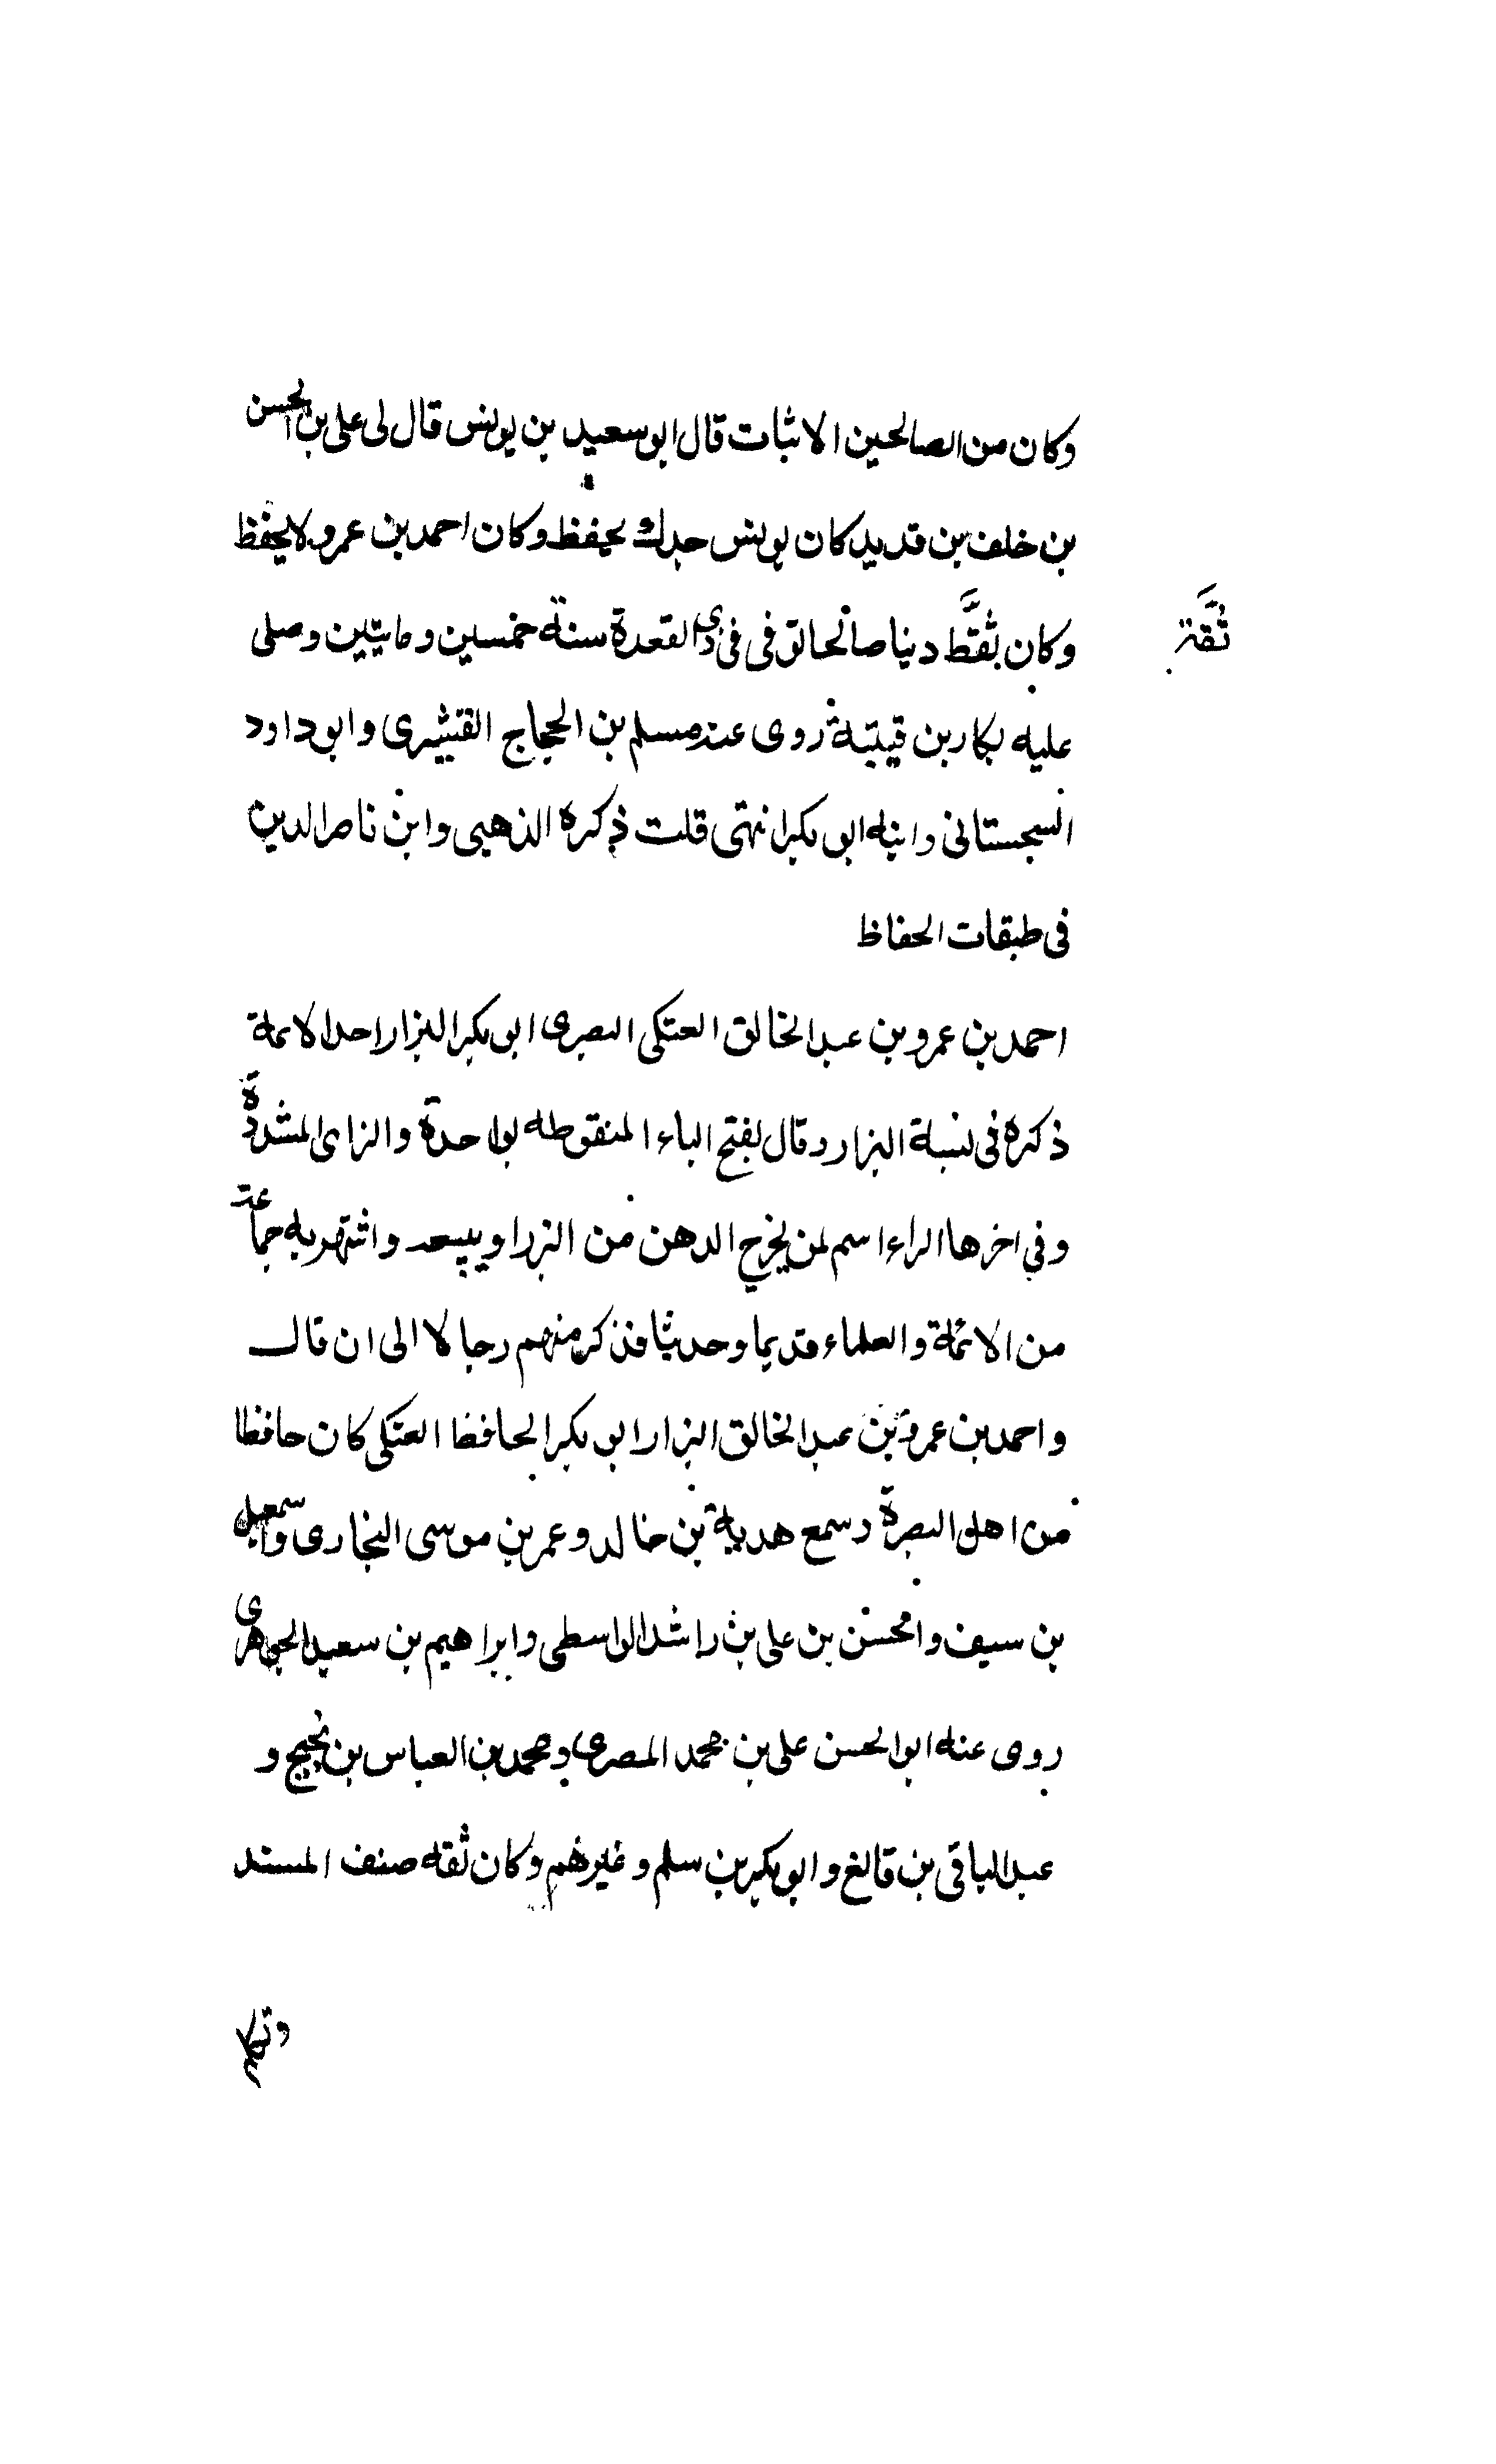 وكان من الصالحين الاثبات قال ابو سعيد بن يونس قال لى على بن الحسن
بن خلف بن قديد كان يونس جدك يحفظ وكان احمد بن عمرو لا يحفظ
وكان ثقة دينا صالحا توفى فى ذى القعدة سنة خمسين ومايتين وصلى
ثقة
عليه بكار بن قيتبة روى عنه مسلم بن الحجاج القيثيرى وابو داود
السجستانى وابنه ابو بكر انتهى قلت ذكره الذهبى وابن ناصر الدين
فى طبقات الحفاظ
احمد بن عمرو بن عبد الخالق العتكى البصرى ابو بكر البزار احد الائمة
ذكره فى نسبة البزار وقال بفتح الباء المنقوطه بواحدة والزاى المشددة
وفى اخرها الراء اسم لمن يخرج الدهن من البزر او يبيعه واشتهر به جماعة
من الائمة والعلماء قديما وحديثا فذكر منهم رجالا الى ان قال
واحمد بن عمرو بن عبد الخالق البزار ابو بكر الحافظ العتكى كان حافظا
من اهل البصرة وسمع هدبة بن خالد وعمر بن موسى البخارى واسمعيل
بن سيف والحسن بن على بن راشد الواسطى وابراهيم بن سعيد الجوهرى
روى عنه ابو الحسن على بن محمد المصرى ومحمد بن العباس بن نجيح و
عبد الباقى بن قالغ وابو بكر بن سلم وغيرهم وكان ثقه صنف المسند
وتكلم